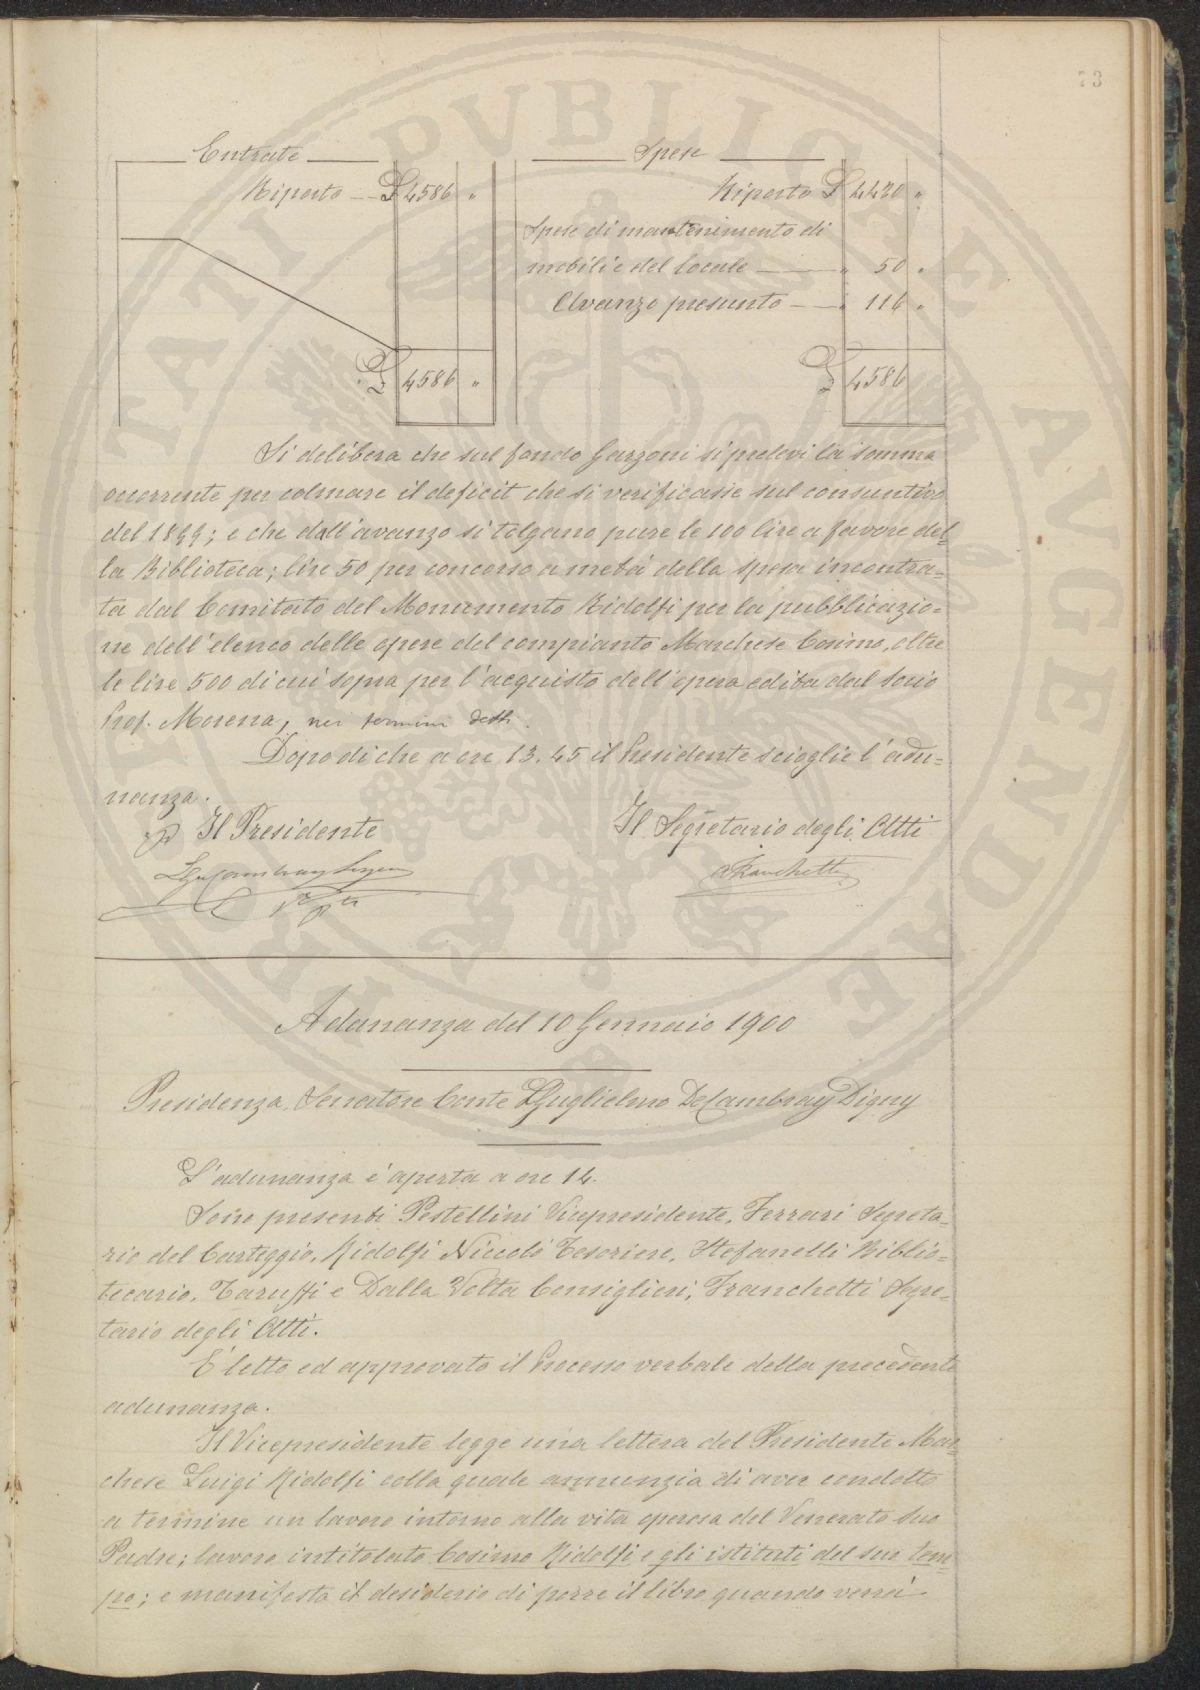 73
Entrate
Riporto — £ 4586 "
£ 4586 "
Spese
Riporto £ 4420 "
Spese di mantenimento di
mobili e del locale — " 50 "
Avanzo presunto — " 116 "
£ 4586
Si delibera che sul fondo Garzoni si prelevi la somma
occorrente per colmare il deficit che si verificasse sul consuntivo
del 1899; e che dall'avanzo si tolgano pure le 100 lire a favore del=
la Biblioteca; lire 50 per concorso a metà della spesa incontra=
ta dal Comitato del Monumento Ridolfi per la pubblicazio=
ne dell'elenco delle opere del compianto Marchese Cosimo, oltre
le lire 500 di cui sopra per l'acquisto dell'opera edita dal socio
Prof. Morena, nei termini detti.
Dopo di che a ore 13.45 il Presidente scioglie l'adu=
nanza.
p Il Presidente
Il Segretario degli Atti
LGuCambray Digny
V Pte
AFranchetti
Adunanza del 10 Gennaio 1900
Presidenza, Senatore Conte LGuglielmo DeCambray Digny
L'adunanza è aperta a ore 14.
Sono presenti Pestellini Vicepresidente, Ferrari Segreta=
rio del Carteggio, Ridolfi Niccolò Tesoriere, Stefanelli Biblio=
tecario, Taruffi e Dalla Volta Consiglieri, Franchetti Segre=
tario degli Atti.
È letto ed approvato il Processo verbale della precedente
adunanza.
Il Vicepresidente legge una lettera del Presidente Mar=
chese Luigi Ridolfi colla quale annunzia di aver condotto
a termine un lavoro intorno alla vita operosa del Venerato Suo
Padre; lavoro intitolato Cosimo Ridolfi e gli istituti del suo tem=
po; e manifesta il desiderio di porre il libro quando verrà
PROSPERITATI PVBLICAE AVGENDAE